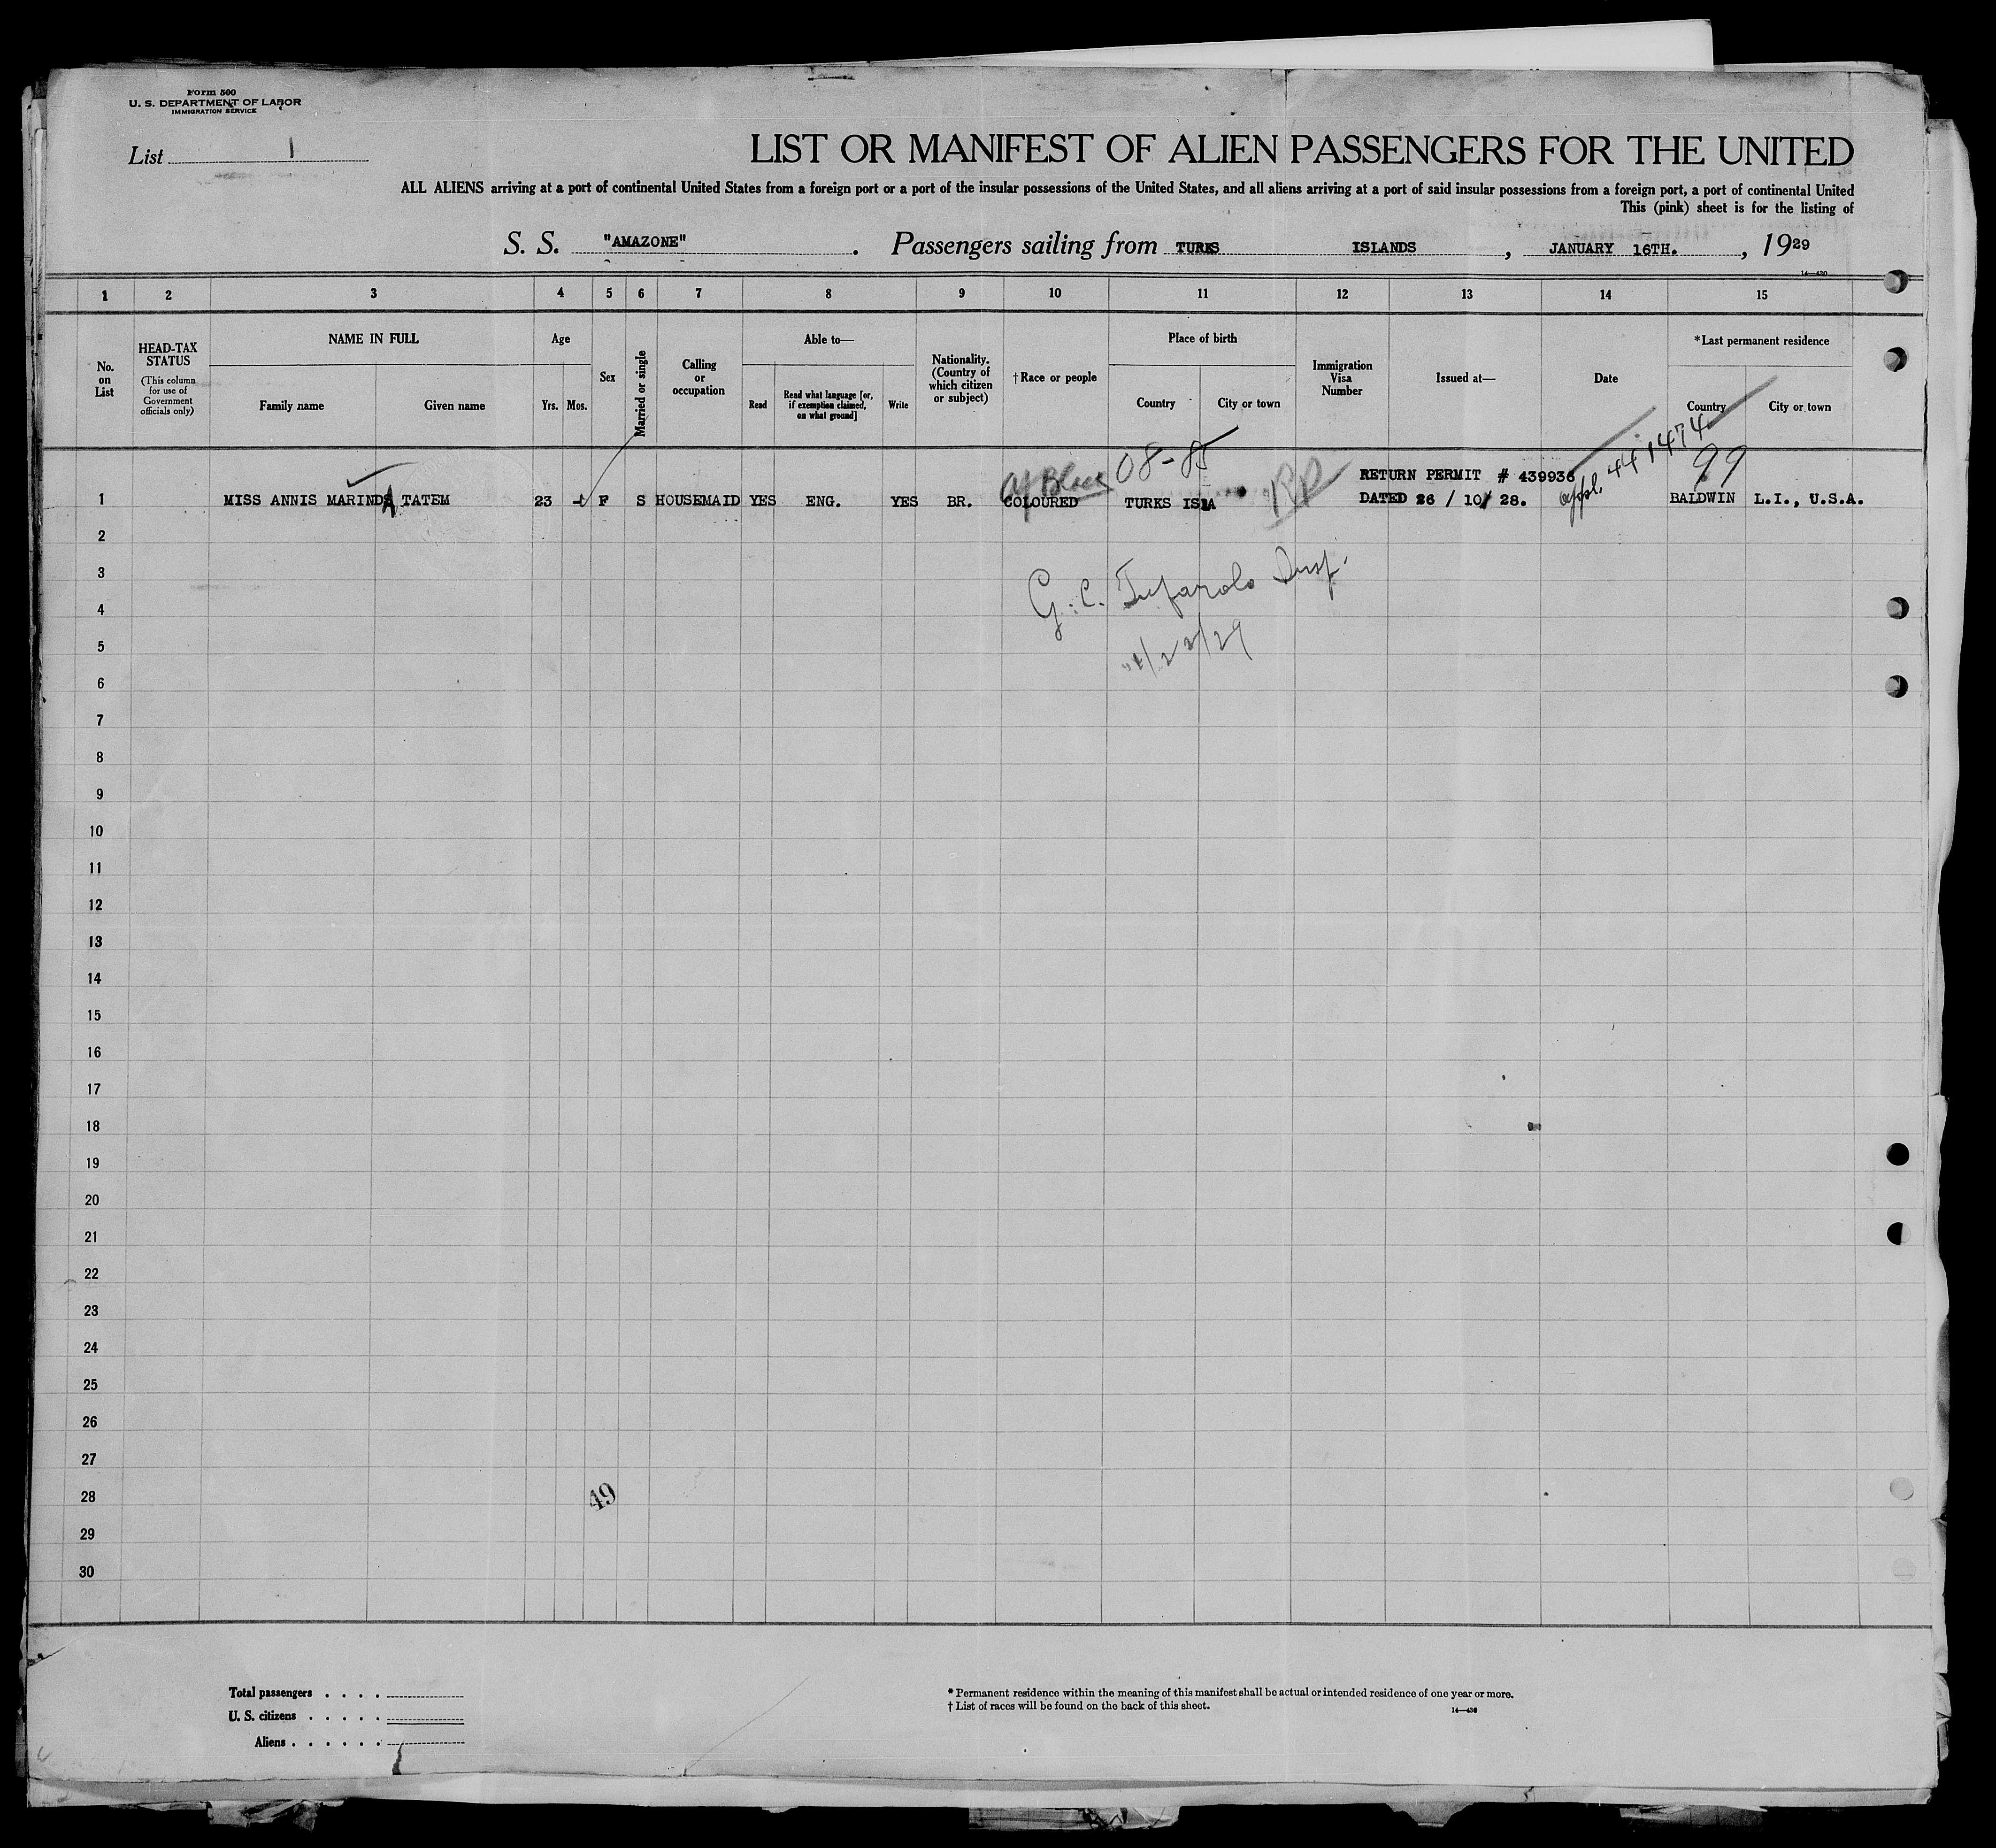 Form 500
U. S. DEPARTMENT OF LABOR
IMMIGRATION SERVICE
List 1
LIST OR MANIFEST OF ALIEN PASSENGERS FOR THE UNITED
ALL ALIENS arriving at a port of continental United States from a foreign port or a port of the insular possessions of the United States, and all aliens arriving at a port of said insular possessions from a foreign port, a port of continental United
This (pink) sheet is for the listing of
S. S. "AMAZONE". Passengers sailing from TURKS ISLANDS, JANUARY 16TH., 1929
14—430
1 2 3 4 5 6 7 8 9 10 11 12 13 14 15
No. on List
HEAD-TAX STATUS
(This column for use of Government officials only)
NAME IN FULL
Family name Given name
Age
Yrs. Mos.
Sex
Married or single
Calling or occupation
Able to—
Read
Read what language [or, if exemption claimed, on what ground]
Write
Nationality. (Country of which citizen or subject)
†Race or people
Place of birth
Country City or town
Immigration Visa Number
Issued at—
Date
*Last permanent residence
Country City or town
08-85
RP
RETURN PERMIT # 439936
appl. 441474
99
1 MISS ANNIS MARINDA TATEM 23 F S HOUSEMAID YES ENG. YES BR. COLOURED TURKS ISLA DATED 26 / 10/ 28. BALDWIN L.I., U.S.A.
2
3
G. C. Insp.
4
5
6
7
8
9
10
11
12
13
14
15
16
17
18
19
20
21
22
23
24
25
26
27
28
49
29
30
Total passengers . . . .
U. S. citizens . . . . .
Aliens . . . . . .
* Permanent residence within the meaning of this manifest shall be actual or intended residence of one year or more.
† List of races will be found on the back of this sheet.
14—430